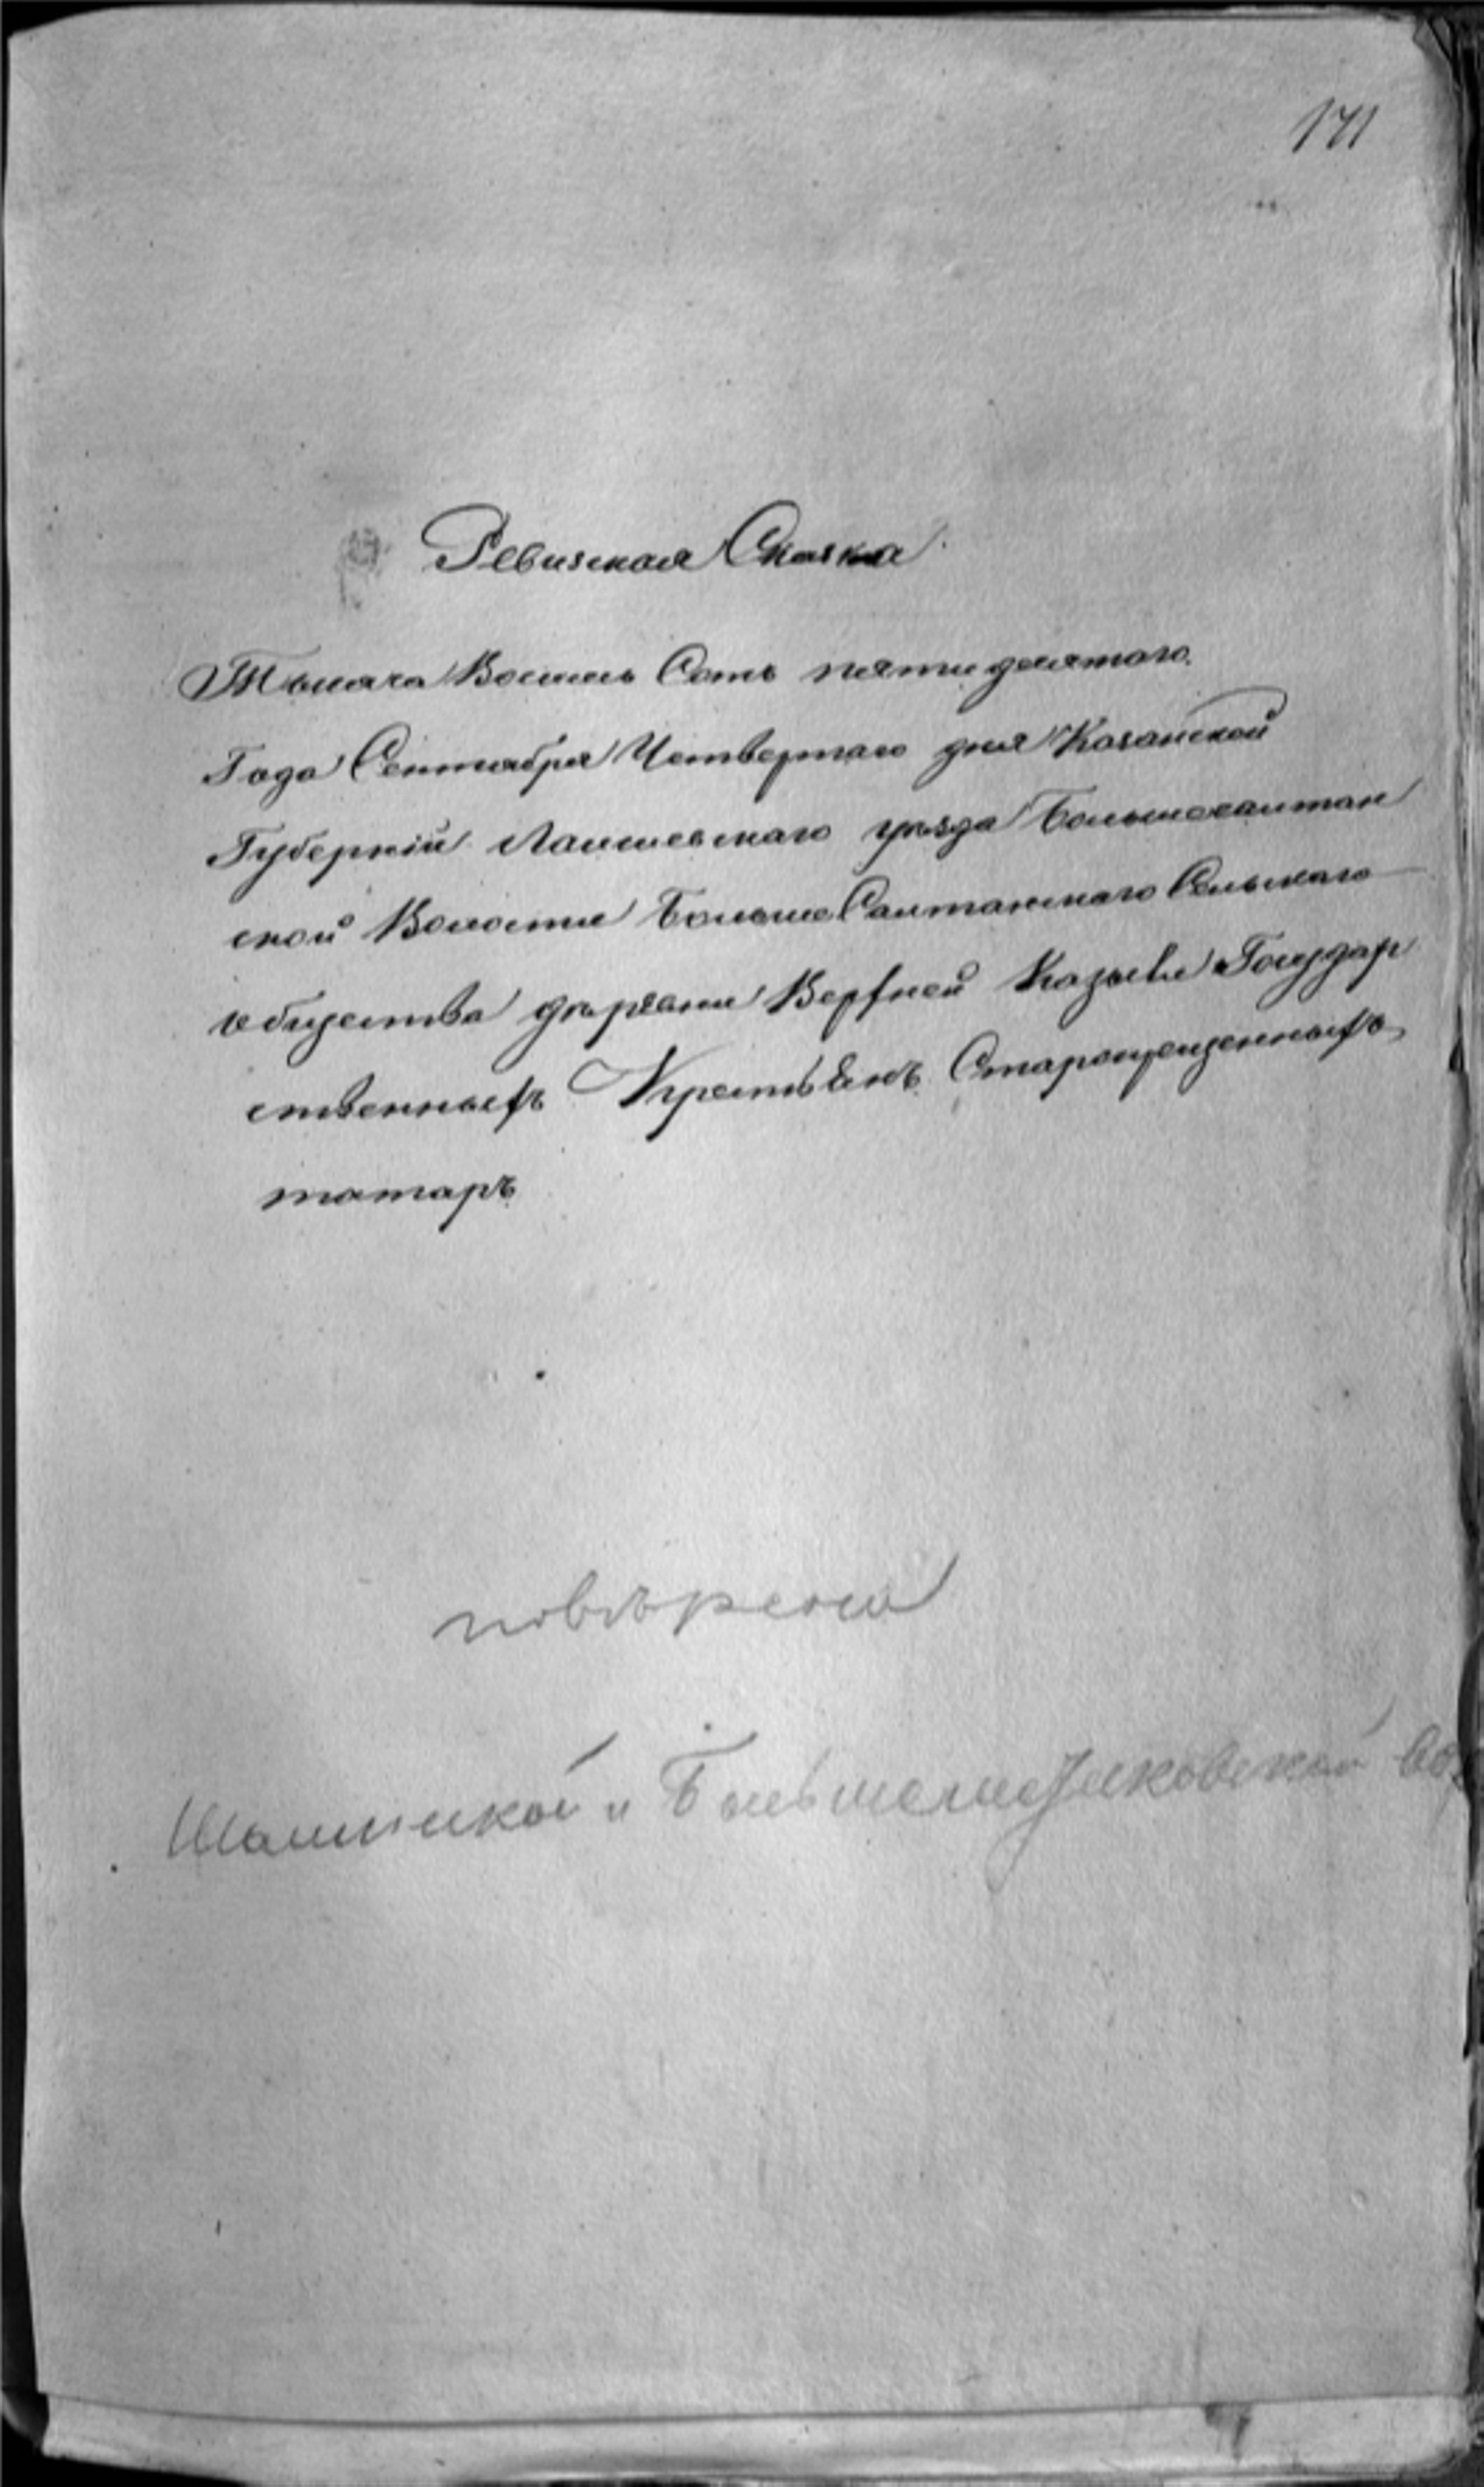 171
Ревизская Сказка
Тысяча Восемь Сотъ пятидесятого
Года Сентября Четвертаго дня Казанской
Губерніи Лаишевскаго уѣзда Большесаитан
ской Волости Больше Саитанскаго Сельскаго
общества дѣревни Верхней Казыли Государ
ственныхъ Крестьянъ Старокрещенныхъ
татаръ
повѣрена
и